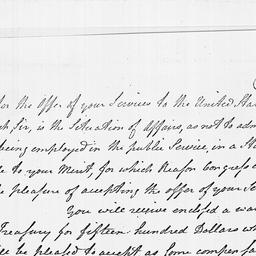 for the Offer of your Services to the United Sta
ch, Sir, is the Situation of Affairs, as not to adm
being employed in the public Service, in a St
le to your Merit, for which Reason Congress c
he pleasure of accepting the offer of your Se
You will receive enclosed a war
Treasury for fifteen hundred Dollars wh
ill be pleased to accept as some compensa